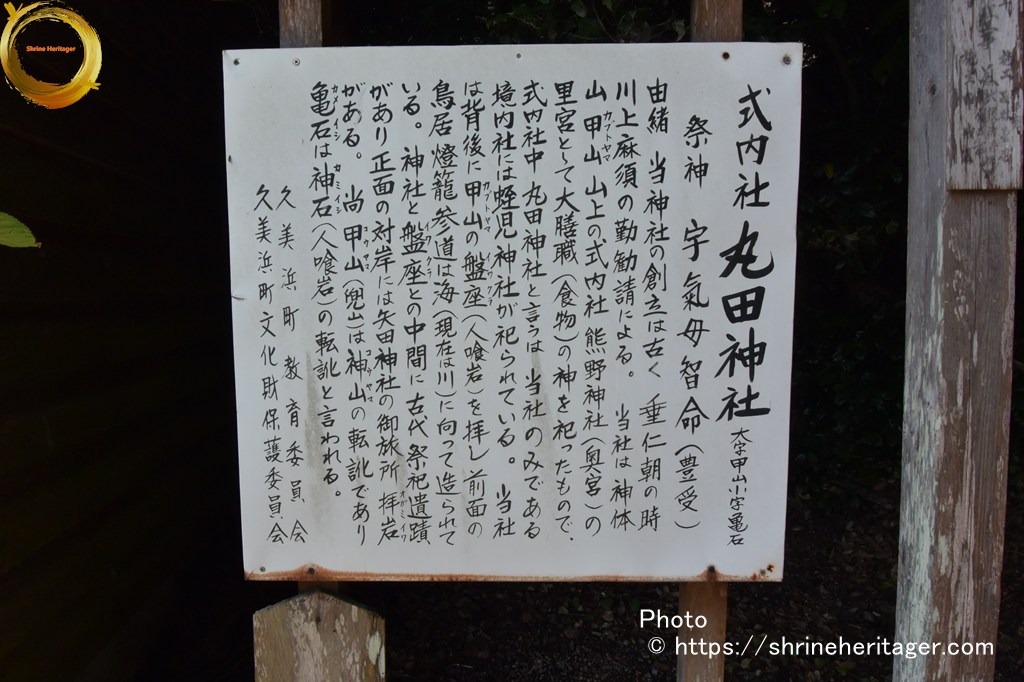 式内社 丸田神社 大字甲山小字亀石
祭神 宇氣母智命(豊受)
由緒 当神社の創立は古く 垂仁朝の時
川上麻須の勤勧請による。 当社は神体
山甲山山上の式内社熊野神社(奥宮)の
カブトヤマ
里宮として大膳職(食物)の神を祀ったもので、
式内社中 丸田神社と言うは 当社のみである
境内社には蛭児神社が祀られている。 当社
は背後に甲山の盤座(人喰岩)を拝し 前面の
カブトヤマ イワクラ
鳥居燈籠参道は海(現在は川)に向って造られて
いる。神社と盤座との中間に古代祭祀遺蹟
イワクラ
があり正面の対岸には矢田神社の御旅所 拝岩
オガミイワ
がある。 尚甲山(兜山)は神山の転訛であり
コウヤマ コウヤマ
亀石は神石(人喰岩)の転訛と言われる。
カメイシ カミイシ
久美浜町教育委員会
久美浜町文化財保護委員会
Shrine Heritager
Photo
© https://shrineheritager.com